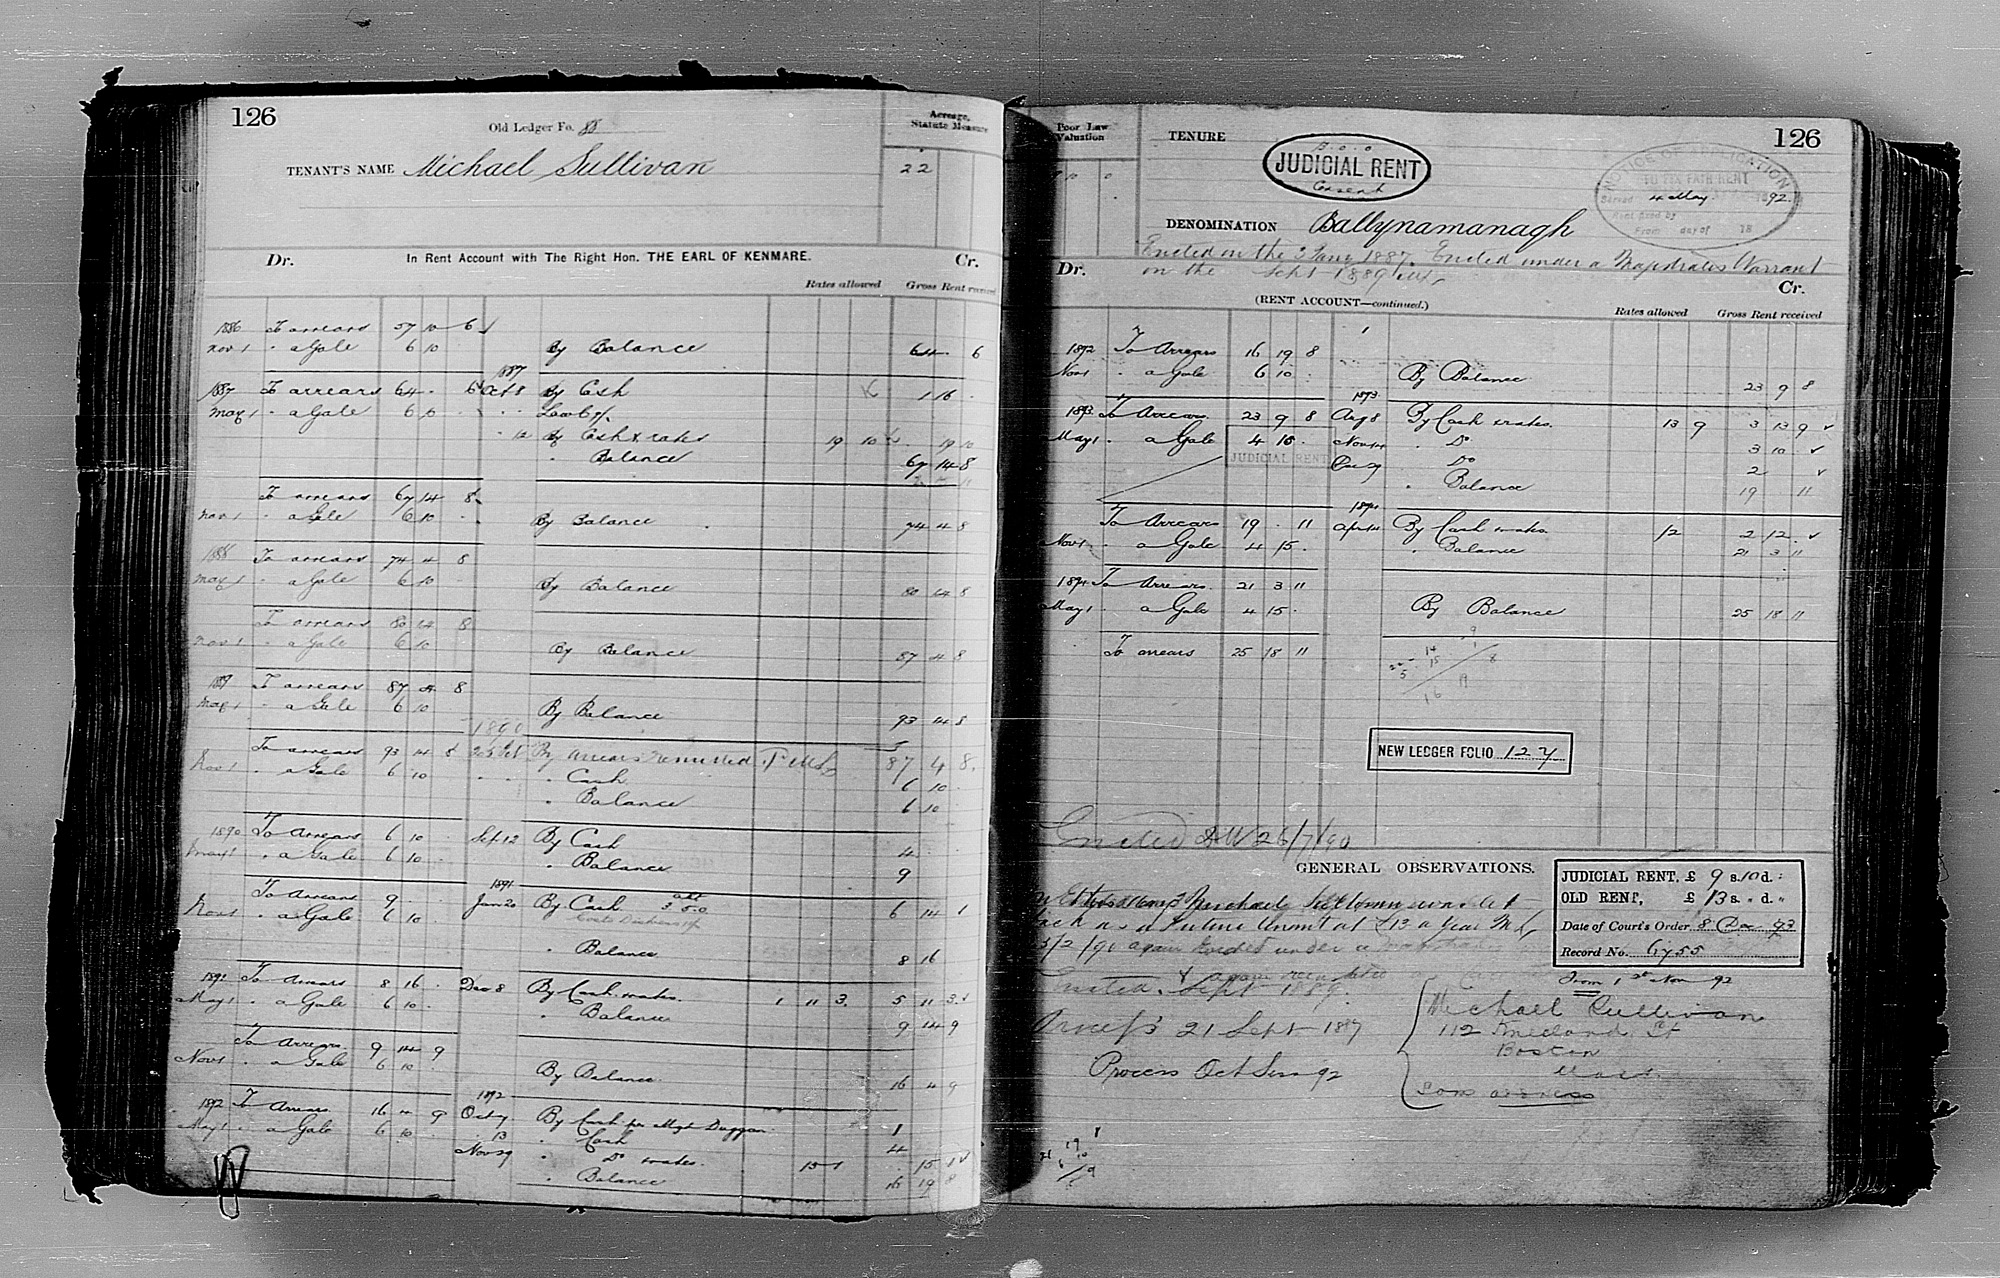 126
Old Ledger Fo. 88
Acreage, Statute Measure
TENANT'S NAME Michael Sullivan
22
In Rent Account with The Right Hon. THE EARL OF KENMARE.
Dr. Cr.
Rates allowed Gross Rent received
1886 To arrears 57 10 6
Nov 1 " a Gale 6 10 By Balance 64 . 6
1887
1887 To arrears 64 . 6 Oct 8 By Cash 1 16 .
May 1 " a Gale 6 10
" 12 By Cash & rates 19 10 . 19 10
" Balance 67 14 8
To arrears 67 14 8
Nov 1 " a Gale 6 10 By Balance 74 4 8
1888 To arrears 74 4 8
May 1 " a Gale 6 10 By Balance 80 14 8
To arrears 80 14 8
Nov 1 " a Gale 6 10 By Balance 87 4 8
1889 To arrears 87 4 8
May 1 " a Gale 6 10 By Balance 93 14 8
1890
To arrears 93 14 8 By arrears remitted 87 4 8
Nov 1 " a Gale 6 10 " Cash 6 10
" Balance 6 10
1890 To Arrears 6 10 Sept 12 By Cash 4
May 1 " a Gale 6 10 " Balance 9
1891
To Arrears 9 Jan 20 By Cash 6 14 1
Nov 1 " a Gale 6 10
" Balance 8 16
1891 To Arrears 8 16 Dec 8 By Cash & rates. 1 11 3 5 11 3
May 1 " a Gale 6 10 " Balance 9 14 9
To Arrears 9 14 9
Nov 1 " a Gale 6 10 By Balance 16 4 9
1892
1892 To Arrears 16 4 9 Oct 7 By Cash per Mgt Duggan 1
May 1 " a Gale 6 10 " 13 " Cash 4
Nov 29 " Do & rates. 15 1 . 15 1
" Balance 16 19 8
126
Poor Law Valuation
TENURE
JUDICIAL RENT
Consent
NOTICE OF APPLICATION
TO FIX FAIR RENT
Served 4 May 1892
Rent fixed by
From day of 18
DENOMINATION Ballynamanagh
Evicted on the 3 Jany 1887. Evicted under a Magistrates Warrant
on the Sept 1889
Dr. Cr.
(RENT ACCOUNT—continued.)
Rates allowed Gross Rent received
1892 To Arrears 16 19 8
Nov 1 " a Gale 6 10 By Balance 23 9 8
1893
1893 To Arrears 23 9 8 Aug 8 By Cash & rates. 13 9 3 13 9
May 1 " a Gale 4 15 Nov 14 " Do 3 10
JUDICIAL RENT
Dec 29 " Do 2
" Balance 19 . 11
1894
To Arrears 19 . 11 Apr 14 By Cash & rates 12 2 12
Nov 1 " a Gale 4 15 " Balance 21 3 11
1894 To Arrears 21 3 11
May 1 " a Gale 4 15 By Balance 25 18 11
To arrears 25 18 11
NEW LEDGER FOLIO 127
Evicted 26/7/90
GENERAL OBSERVATIONS.
JUDICIAL RENT, £ 9 s. 10 d.:
OLD RENT, £ 13 s. " d. "
Date of Court's Order 8 Dec. 93
Record No. 6755
From 1st Nov 92
Michael Sullivan was let
as a Future Tenant at £13 a Year
5/2/91 again Evicted under a
Evicted. Sept 1889.
Process 21 Sept 1887
Process Oct Sess 92
Michael Sullivan
112 Kneeland St
Boston
Mass.
Sons address